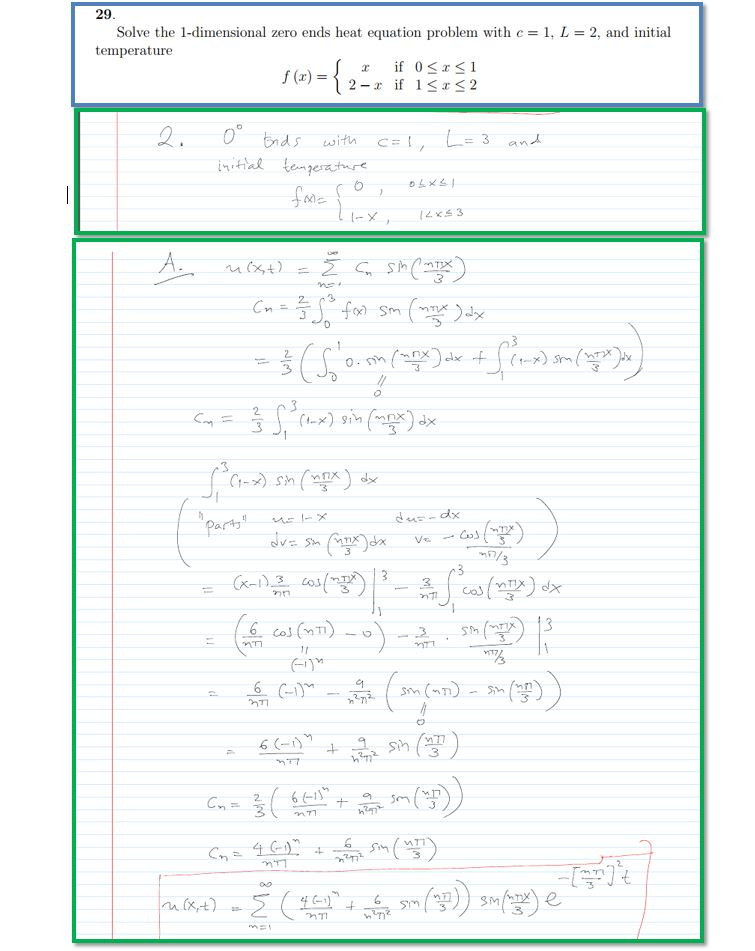 29.
Solve the 1-dimensional zero ends heat equation problem with c = 1, L = 2, and initial
temperature
f (x) = { x if 0 ≤ x ≤ 1
2 − x if 1 ≤ x ≤ 2
2. 0° Ends with c=1, L=3 and
initial temperature
f(x)= { 0, 0≤x≤1
1-x, 1<x≤3
A. u(x,t) = ∞ Σ n=1 Cn sin(nπx/3)
Cn = 2/3 ∫₀³ f(x) sin (nπx/3) dx
= 2/3 ( ∫₀¹ 0. sin (nπx/3) dx + ∫₁³ (1-x) sin (nπx/3) dx )
|| 0
Cn = 2/3 ∫₁³ (1-x) sin (nπx/3) dx
∫₁³ (1-x) sin (nπx/3) dx
( "parts" u=1-x du=-dx
dv= sin (nπx/3) dx v= - cos(nπx/3) / nπ/3 )
= (x-1) 3/nπ cos(nπx/3) |₁³ - 3/nπ ∫₁³ cos(nπx/3) dx
= ( 6/nπ cos(nπ) - 0 ) - 3/nπ . sin(nπx/3) / nπ/3 |₁³
|| (-1)ⁿ
= 6/nπ (-1)ⁿ - 9/n²π² ( sin(nπ) - sin(nπ/3) )
|| 0
= 6(-1)ⁿ/nπ + 9/n²π² sin (nπ/3)
Cn = 2/3 ( 6(-1)ⁿ/nπ + 9/n²π² sin(nπ/3) )
Cn = 4(-1)ⁿ/nπ + 6/n²π² sin (nπ/3)
u(x,t) = ∞ Σ n=1 ( 4(-1)ⁿ/nπ + 6/n²π² sin(nπ/3) ) sin(nπx/3) e^-[nπ/3]²t